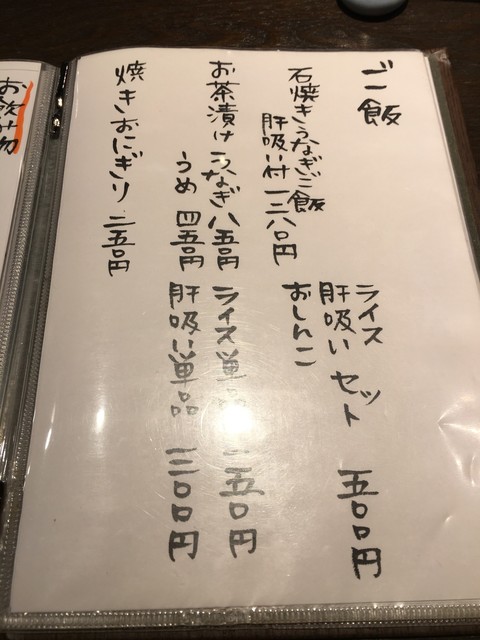 ご飯
石焼きうなぎご飯
肝吸い付 一三八〇円
お茶漬け うなぎ 八五〇円
うめ 四五〇円
焼きおにぎり 二五〇円
ライス
肝吸い セット 五〇〇円
おしんこ
ライス単品 二五〇円
肝吸い単品 三〇〇円
お飲み物